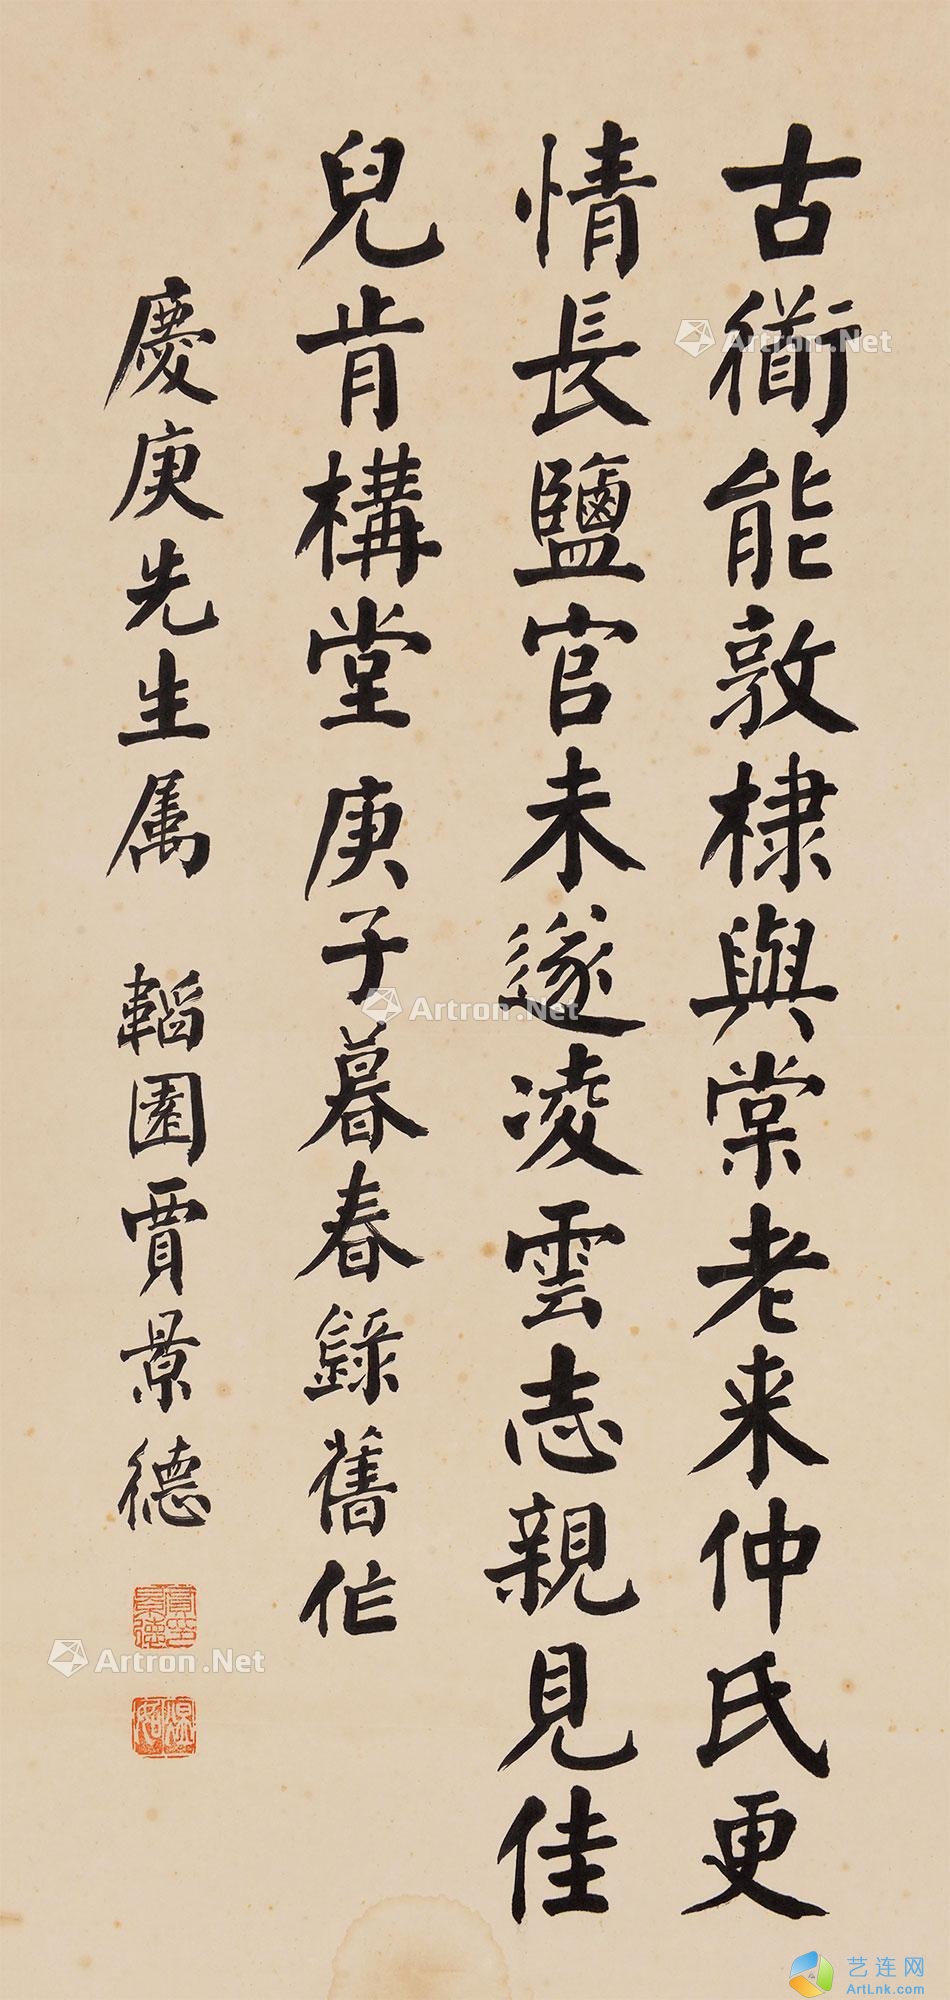 古衜能敦棣與棠老来仲氏更
情長鹽官未遂凌雲志親見佳
兒肯構堂 庚子暮春錄舊作
慶庚先生属 韜園賈景德
Artron.Net
Artron.Net
Artron.Net
艺连网
ArtLnk.com